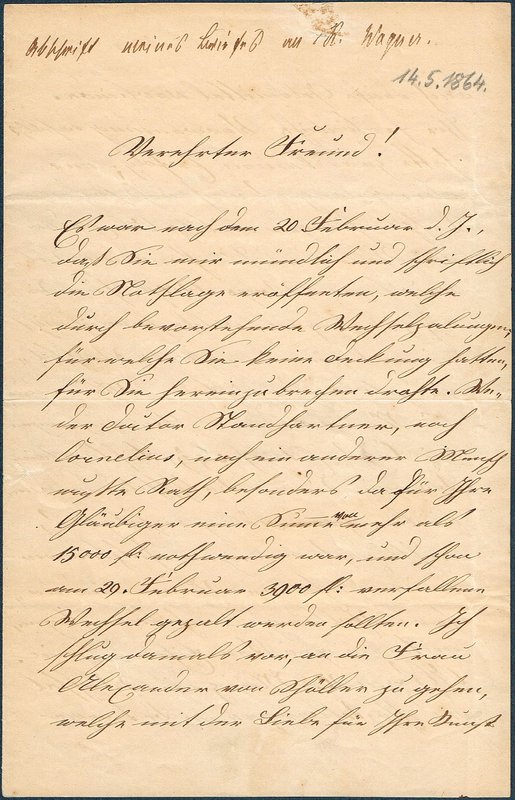 Abschrift meines Briefes an R. Wagner.
14.5.1864.
Verehrter Freund!
Es war nach dem 20 Februar d. J.,
daß Sie mir mündlich und schriftlich
die Nothlage eröffneten, welche
durch bevorstehende Wechselzalungen,
für welche Sie keine Deckung hatten,
für Sie hereinzubrechen drohte. We-
der Doctor Standhartner, noch
Cornelius, noch ein anderer Mensch
wußte Rath, besonders da für Ihre
Gläubiger eine Summe von mehr als
15000 fl: nothwendig war, und schon
am 29. Februar 3900 fl: verfallene
Wechsel gezalt werden sollten. Ich
schlug damals vor, an die Frau
Alexander von Schöller zu gehen,
welche mit der Liebe für Ihre Kunst